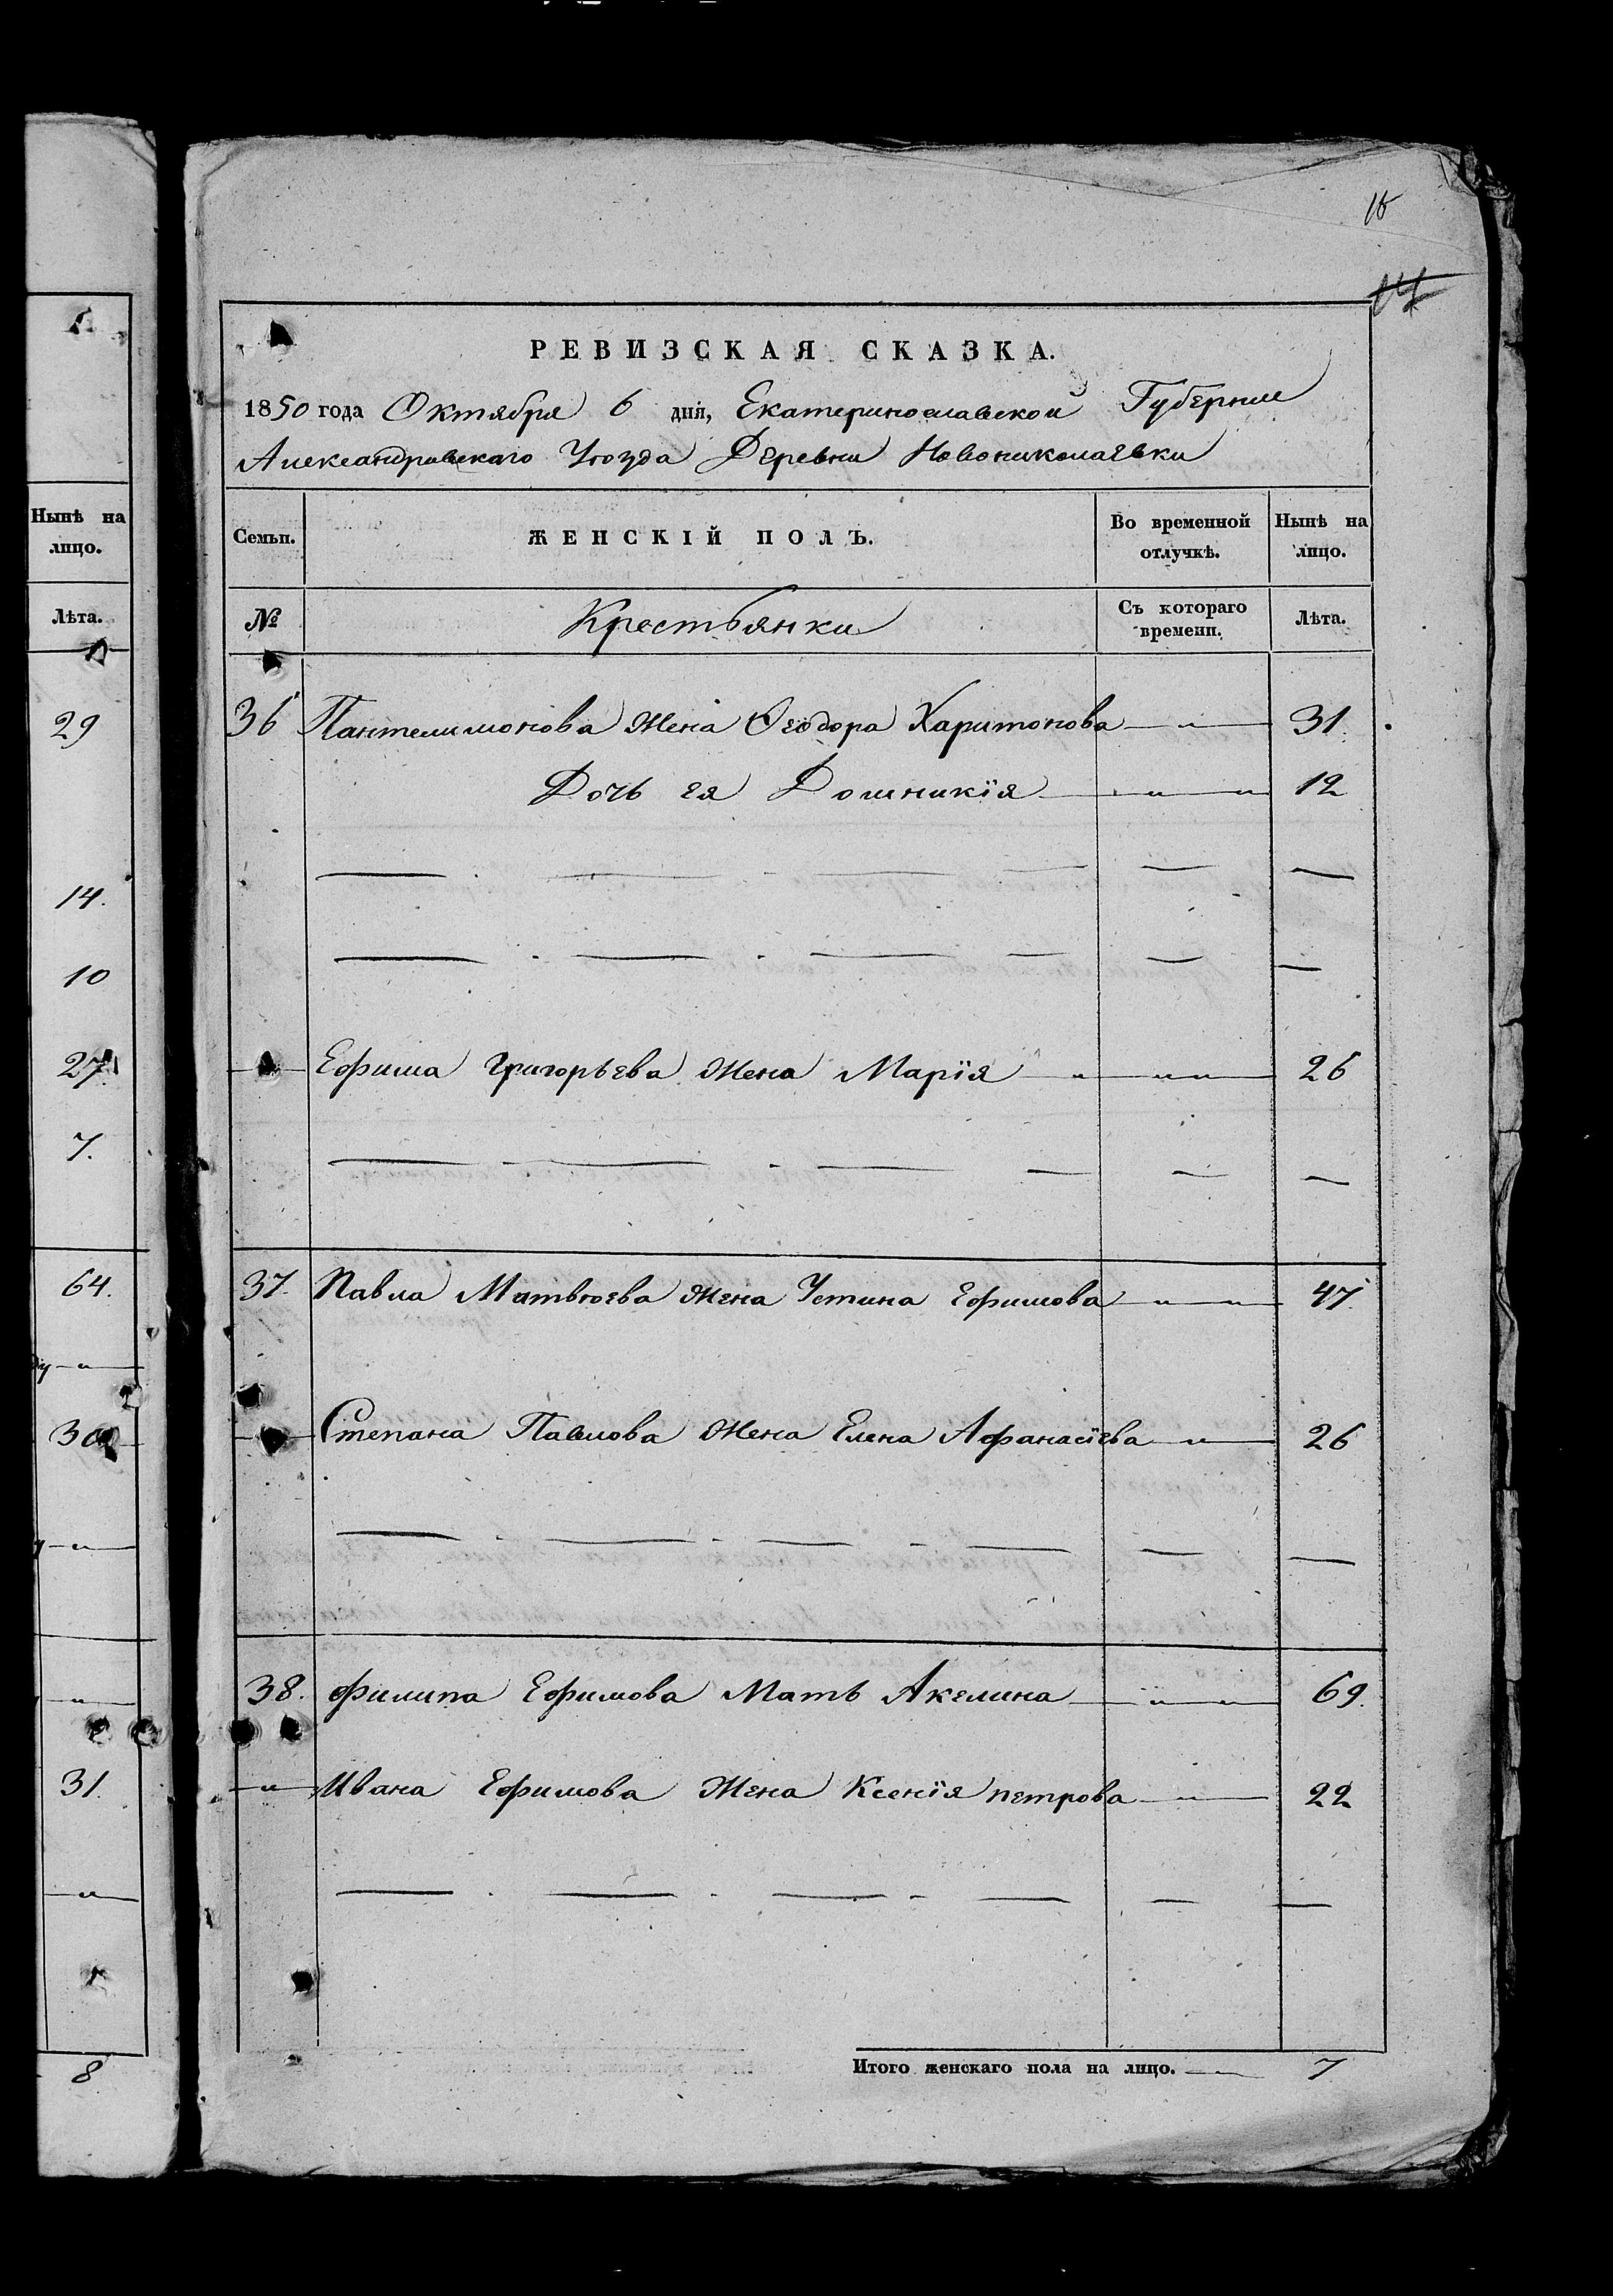 Нынѣ на
лицо.
Лѣта.
29
14.
10
27
7.
64.
30
31.
8
15
14
РЕВИЗСКАЯ СКАЗКА.
1850 года Октября 6 дня, Екатеринославской Губернии
Александровскаго Уѣзда Деревни Новониколаевки
Семьи. ЖЕНСКІЙ ПОЛЪ. Во временной отлучкѣ. Нынѣ на лицо.
№ Крестьянки Съ котораго времени. Лѣта.
36 Пантелимонова Жена Ѳеодора Харитонова — " — 31.
Дочь ея Домникія — " — " 12
Ефима Григорьева Жена Марія — " — " " — 26
37. Павла Матвѣева Жена Устина Ефимова — " — " — 47.
Степана Павлова Жена Елена Афанасіева — " — 26
38. Филипа Ефимова Мать Акелина — " — " — 69.
— " — Ивана Ефимова Жена Ксенія Петрова — " — 22
Итого женскаго пола на лицо. — 7